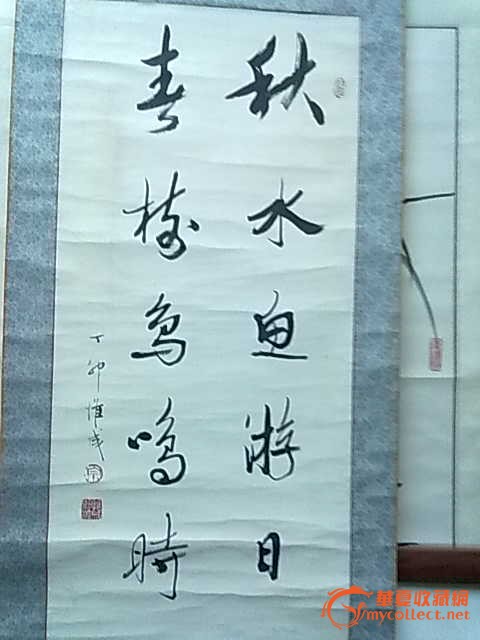 秋水鱼游日
春树鸟鸣时
丁卯惟成
華夏收藏網
mycollect.net